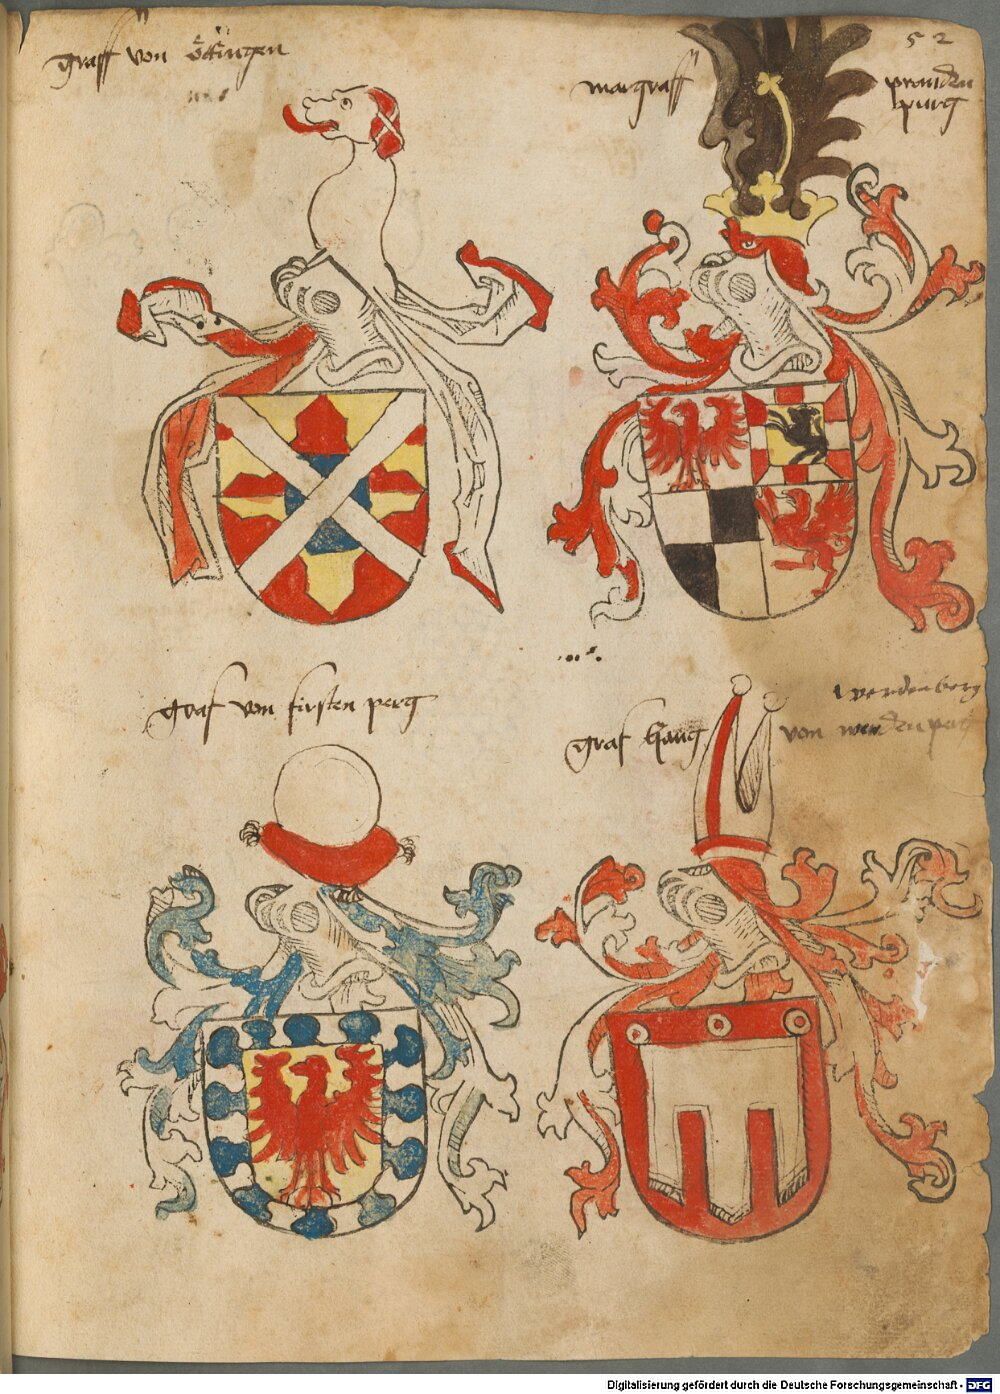 graff von öttingen
margraff
pranden
purg
52
graf von firsten perg
graf haug
werdenberg
von werdenperg
Digitalisierung gefördert durch die Deutsche Forschungsgemeinschaft - DFG